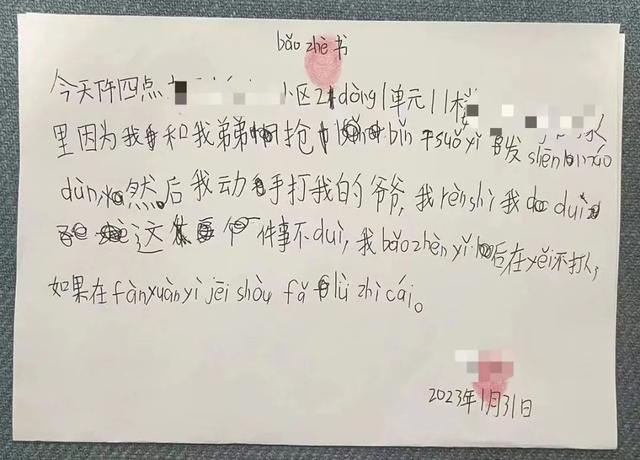 bǎo zhè书
今天下午四点 小区2 dòng1单元11楼
里因为我和我弟弟抢 bǐn suǒyǐ 发shēn
dùn, 然后我动手打我的爷爷,我rènshi
这件事不duì,我bǎozhèn yǐ后在yěi不打人,
如果在fànxuànyì jēi shòu fǎ lǜ zhì cái。
2023年1月31日